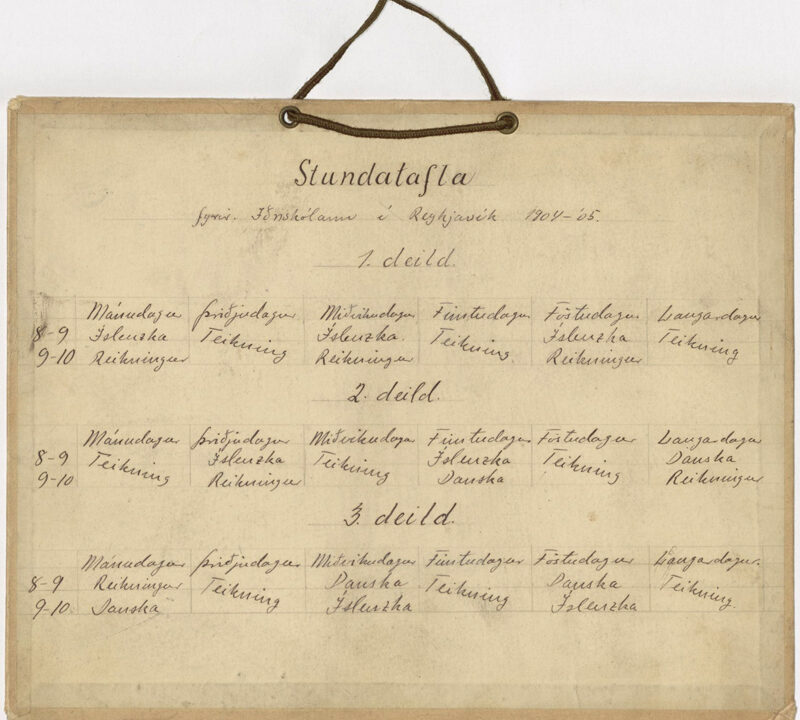 Stundatafla
fyrir Iðnskólann í Reykjavík 1904-'05.
1. deild.
Mánudagur Þriðjudagur Miðvikudagur Fimtudagur Föstudagur Laugardagur
8-9 Íslenzka Teikning Íslenzka. Teikning Íslenzka Teikning
9-10 Reikningur Reikningur Reikningur
2. deild.
Mánudagur Þriðjudagur Miðvikudagur Fimtudagur Föstudagur Laugardagur
8-9 Teikning Íslenzka Teikning Íslenzka Teikning Danska
9-10 Reikningur Danska Reikningur
3. deild.
Mánudagur Þriðjudagur Miðvikudagur Fimtudagur Föstudagur Laugardagur.
8-9 Reikningur Teikning Danska Teikning Danska Teikning.
9-10. Danska Íslenzka Íslenzka